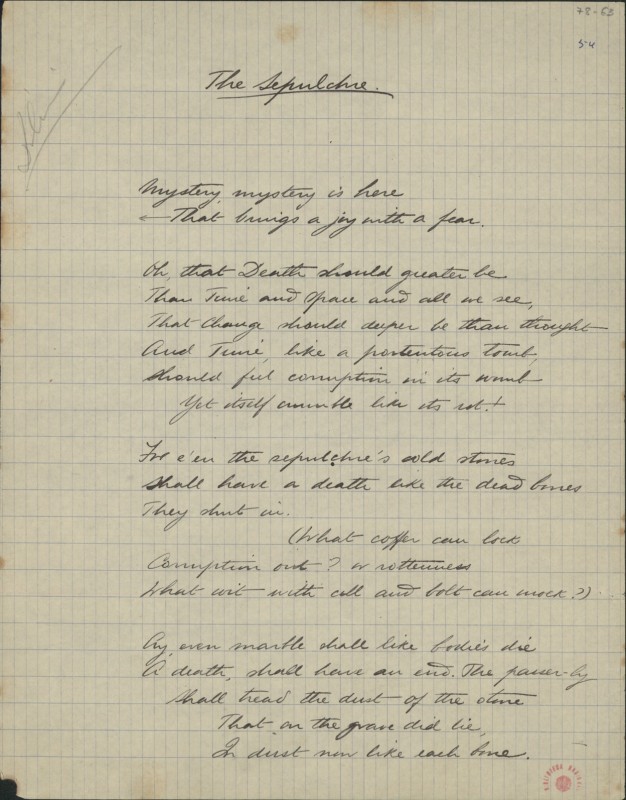 78-63
54
The Sepulchre.
Mystery, mystery is here
That brings a joy with a fear.
Oh, that Death should greater be
Than Time and Space and all we see,
That Change should deeper be than thought
And Time, like a portentous tomb,
Should feel corruption in its womb
Yet itself crumble like its rot!
For e'en the sepulchre's cold stones
Shall have a death like the dead bones
They shut in.
(What coffer can lock
Corruption out? or rottenness
What wit with cell and bolt can mock?)...
Ay, even marble shall like bodies die
A death, shall have an end. The passer-by
Shall tread the dust of the stone
That on the grave did lie,
In dust now like each bone.